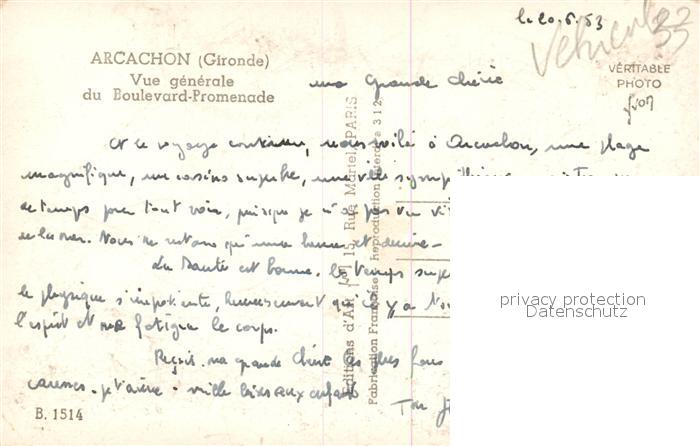 le 20.6.53
ARCACHON (Gironde)
Vue générale
du Boulevard-Promenade
VÉRITABLE
PHOTO
ma Grande Chérie
Et le voyage continue, nous voilà à Arcachon, une plage
magnifique, un casino superbe, une ville
de temps pour tout voir, puisque je n'ai pas vu
et la mer. Nous ne restons qu'une heure et demie -
La Santé est bonne, le temps
le physique s'impatiente, heureusement qu'il y a
l'esprit et fatigue le corps.
Reçois ma grande Chérie les plus
caresses. je t'aime - mille baisers aux enfants
Ton
B. 1514
Editions d'Art 15, Rue Martel, PARIS
Fabrication Française - Reproduction Interdite 312
privacy protection
Datenschutz